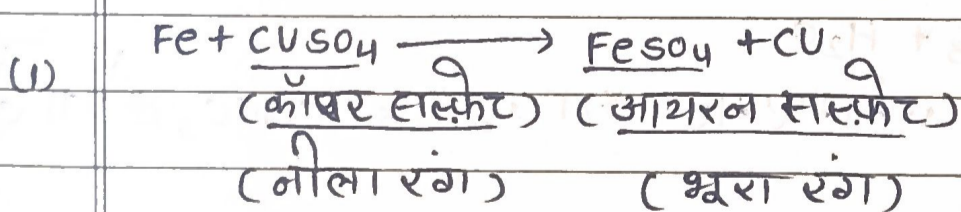 Fe + CUSO4 ⟶ FeSO4 + CU
(1)
(कॉपर सल्फ़ेट) (आयरन सल्फ़ेट)
(नीला रंग) (भूरा रंग)